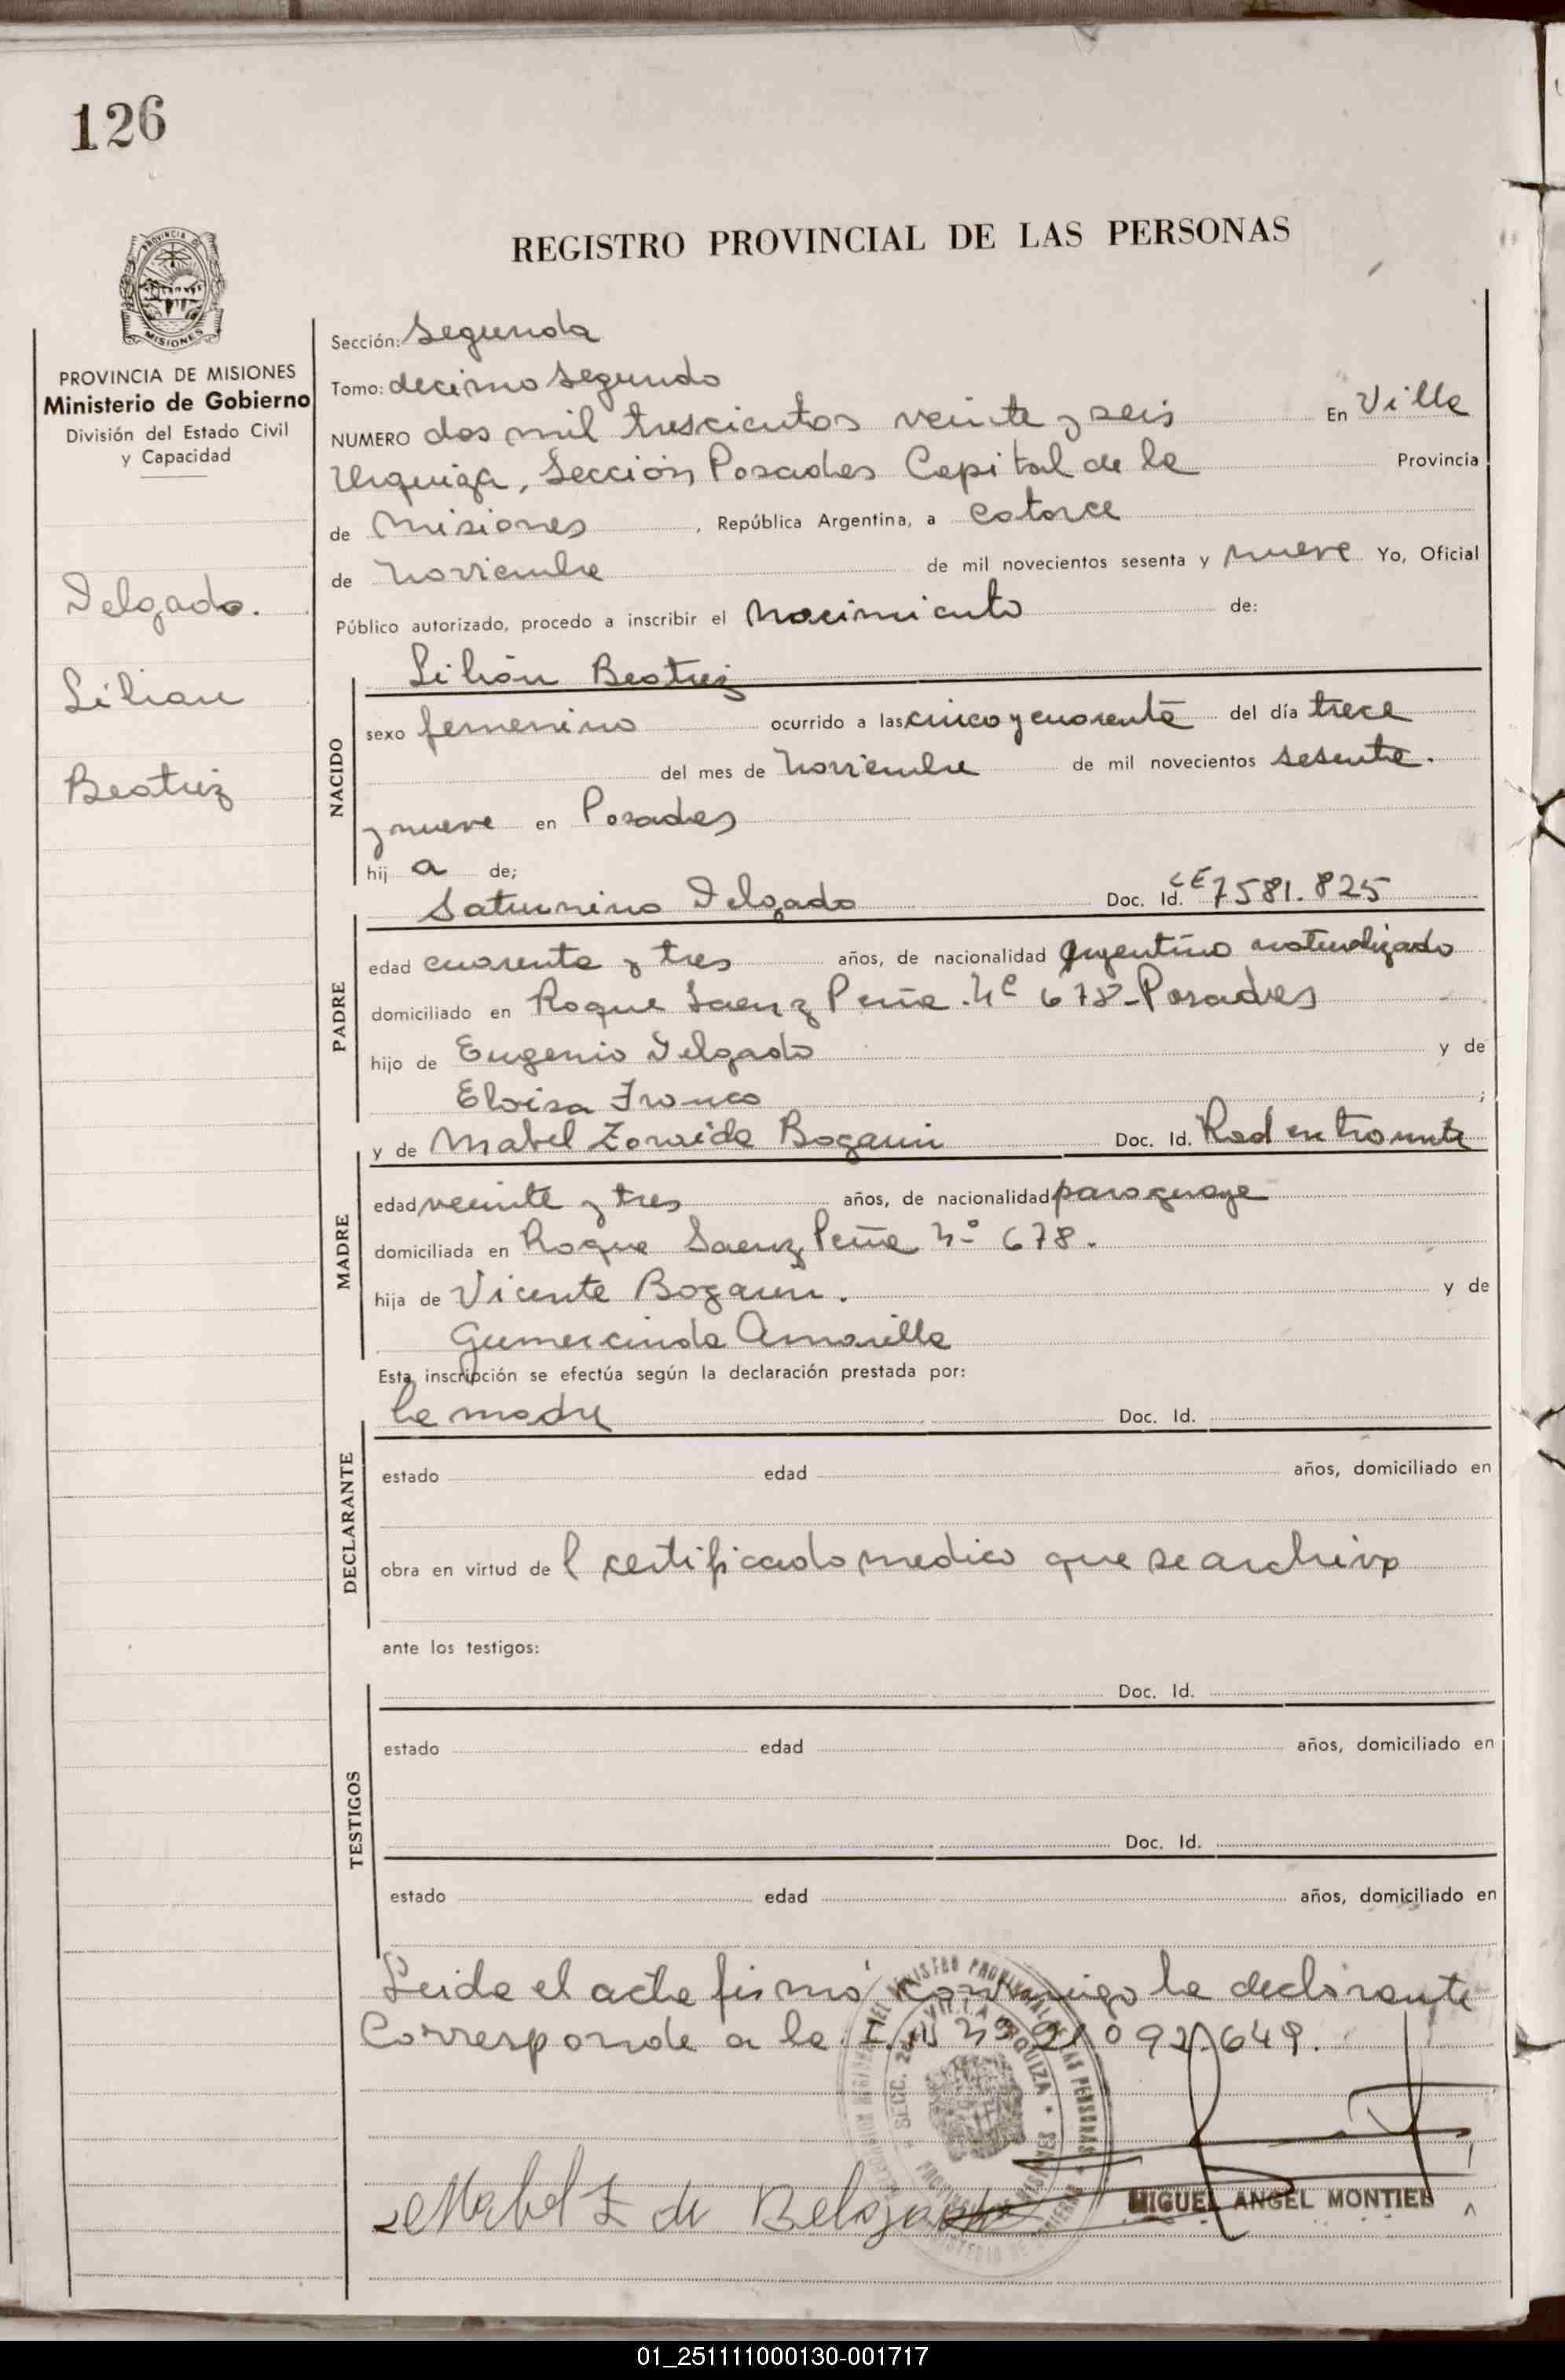 126
REGISTRO PROVINCIAL DE LAS PERSONAS
PROVINCIA DE MISIONES
PROVINCIA DE MISIONES
Ministerio de Gobierno
División del Estado Civil
y Capacidad
Delgado.
Lilian
Beatriz
Sección: Segunda
Tomo: decimo segundo
NUMERO dos mil trescientos veinte y seis En Villa
Urquiza, Sección Posadas Capital de la Provincia
de Misiones, República Argentina, a catorce
de Noviembre de mil novecientos sesenta y nueve Yo, Oficial
Público autorizado, procedo a inscribir el Nacimiento de:
NACIDO
Lilián Beatriz
sexo femenino ocurrido a las cinco y cuarenta del día trece
del mes de Noviembre de mil novecientos sesenta.
y nueve en Posadas
hij a de;
PADRE
Saturnino Delgado Doc. Id. CE 7581.825
edad cuarenta y tres años, de nacionalidad Argentino naturalizado
domiciliado en Roque Saenz Peña Nº 678-Posadas
hijo de Eugenio Delgado y de
Eloisa Franco ;
MADRE
y de Mabel Zoraida Bogarin Doc. Id. Rad en tramite
edad veinte y tres años, de nacionalidad paraguaya
domiciliada en Roque Saenz Peña Nº 678.
hija de Vicente Bogarin. y de
Gumercinda Amarilla
Esta inscripción se efectúa según la declaración prestada por:
DECLARANTE
la madre Doc. Id.
estado edad años, domiciliado en
obra en virtud de l certificado medico que se archiva
ante los testigos:
TESTIGOS
Doc. Id.
estado edad años, domiciliado en
Doc. Id.
estado edad años, domiciliado en
Leida el acta firmó conmigo la declarante
Corresponde a la 092.649.
SECC. 2da. VILLA URQUIZA
PROVINCIA DE MISIONES
Mabel Z de Delgado
MIGUEL ANGEL MONTIEL
01_251111000130-001717